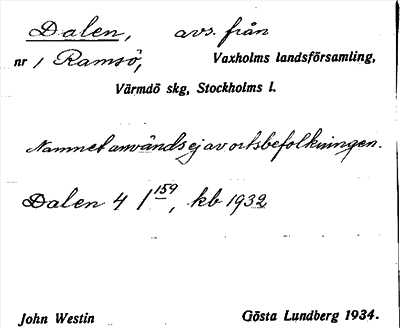 Dalen, avs. från
nr 1 Ramsö, Vaxholms landsförsamling,
Värmdö skg, Stockholms l.
Namnet användsejavortsbefolkningen.
Dalen 4 1 159, kb 1932
John Westin Gösta Lundberg 1934.